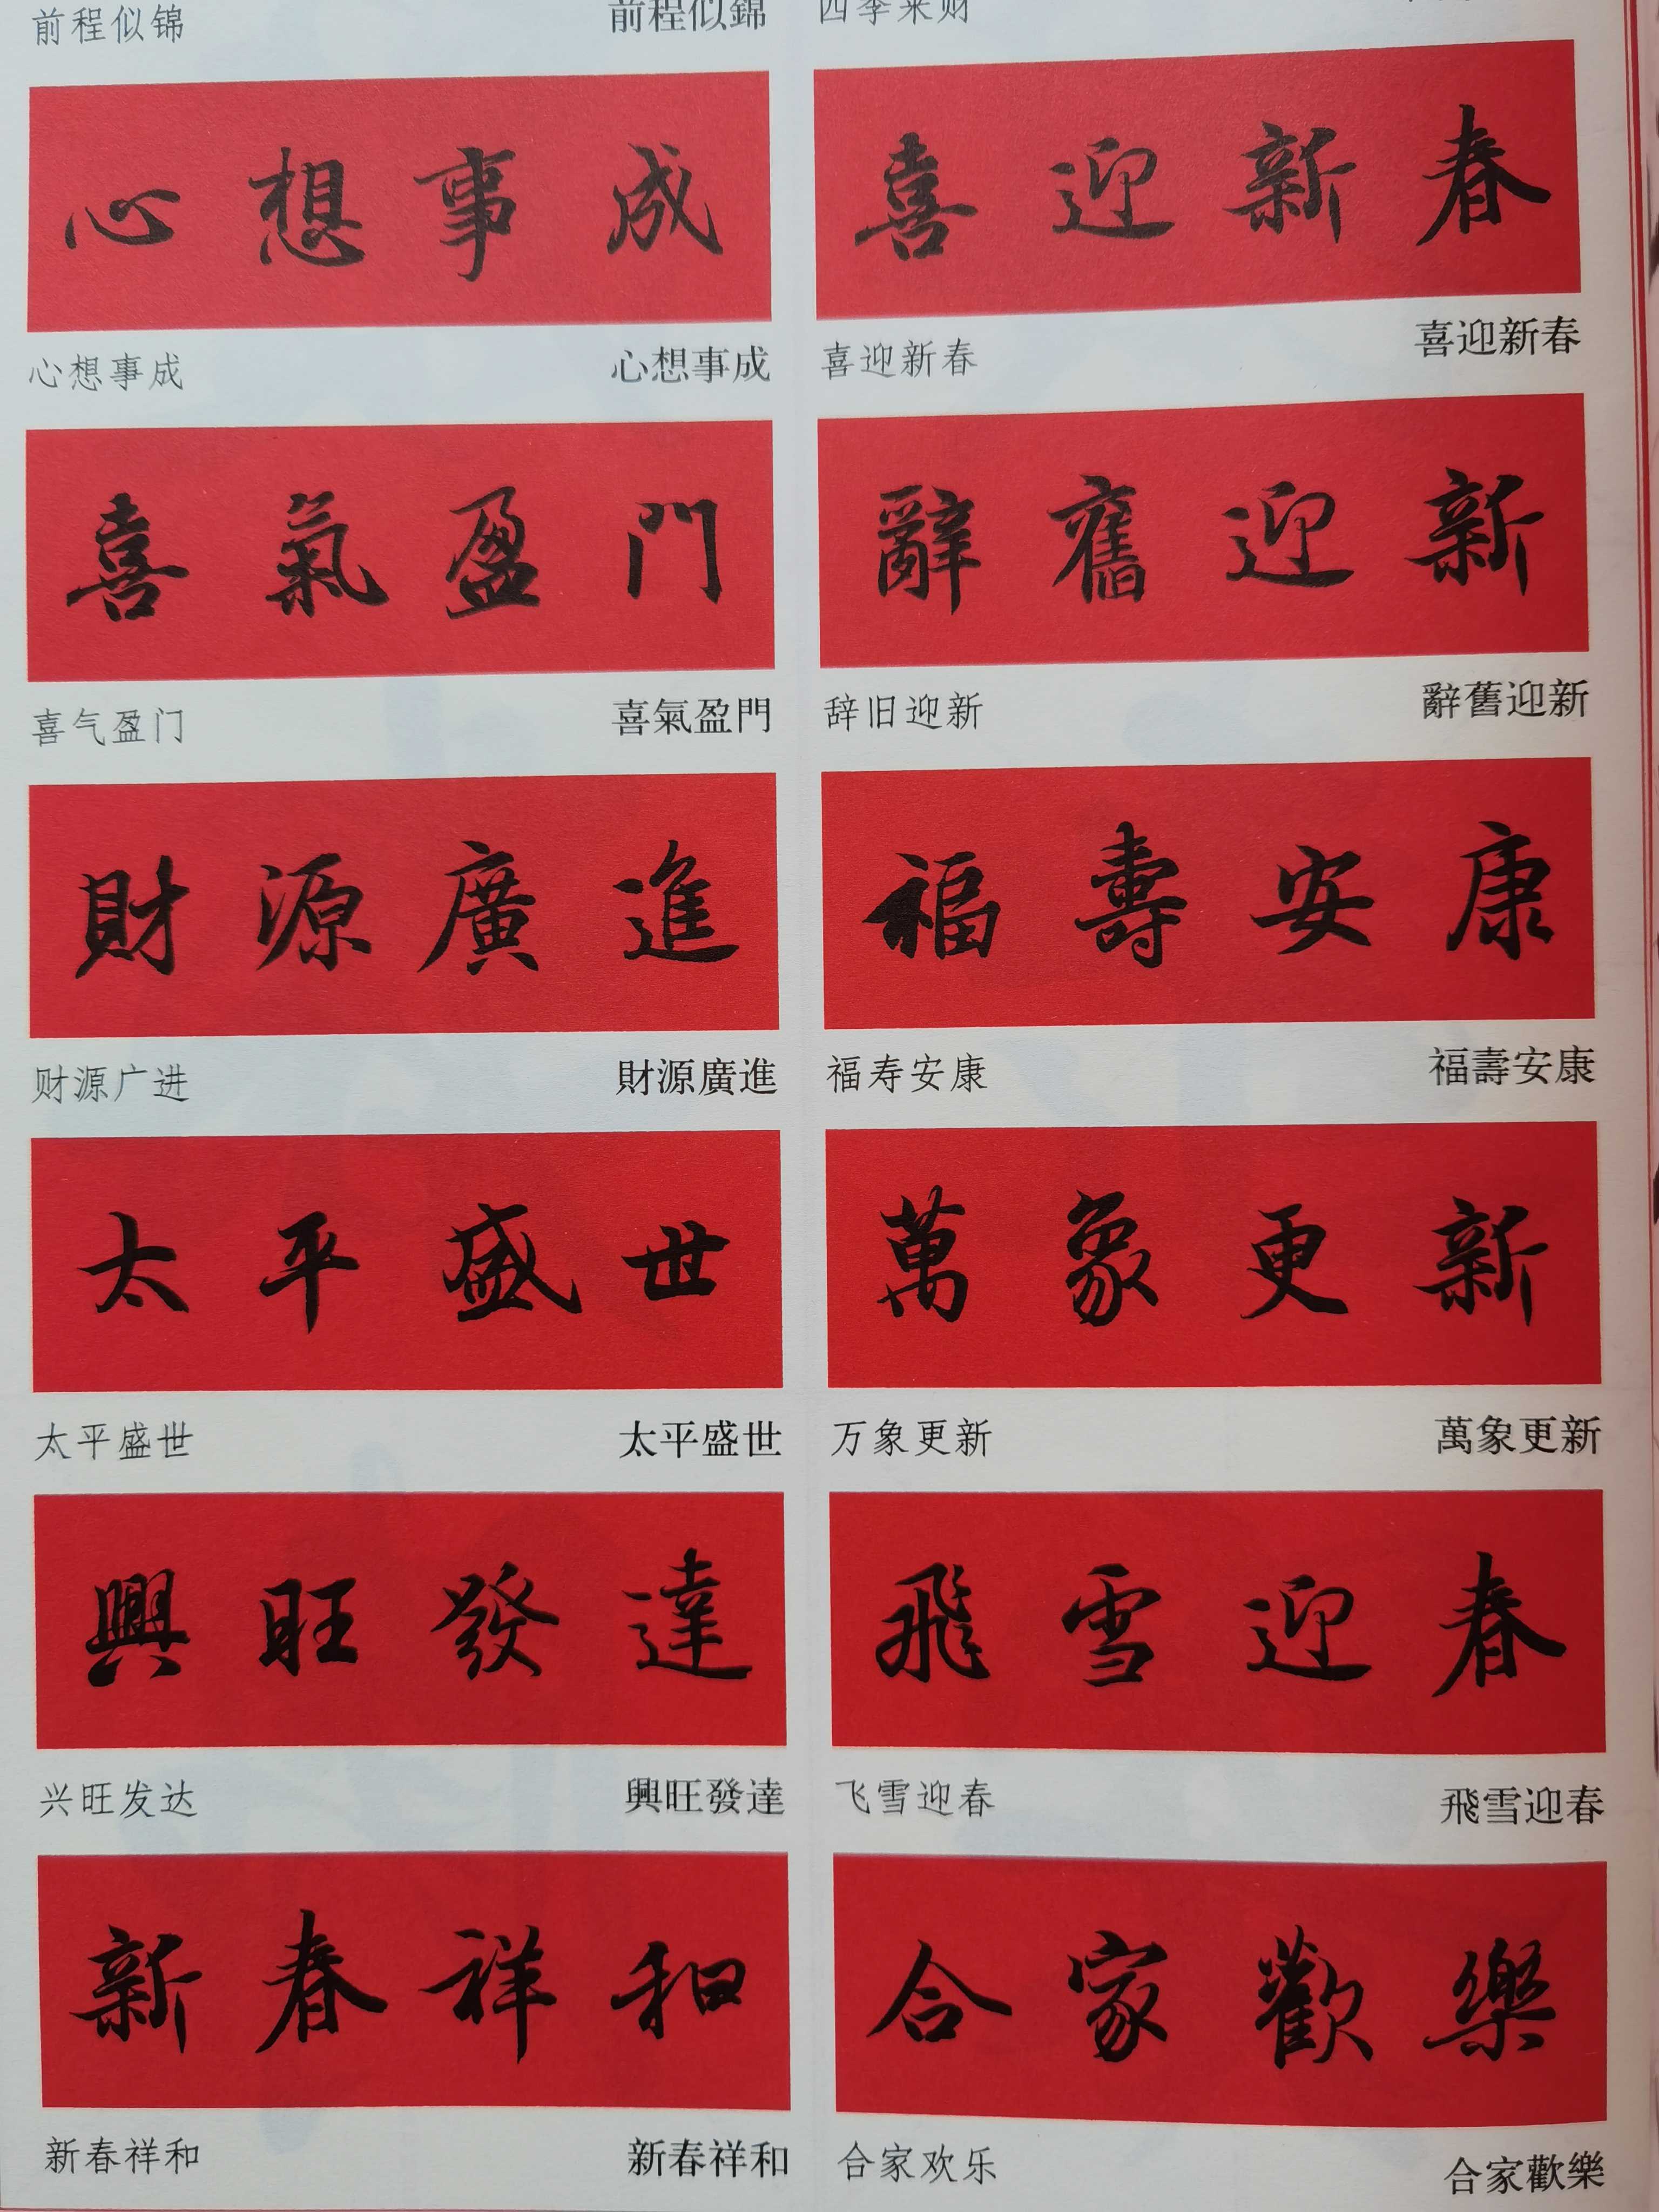 前程似锦 前程似錦
四季来财
心想事成
心想事成 心想事成
喜迎新春
喜迎新春 喜迎新春
喜氣盈門
喜气盈门 喜氣盈門
辭舊迎新
辞旧迎新 辭舊迎新
財源廣進
财源广进 財源廣進
福壽安康
福寿安康 福壽安康
太平盛世
太平盛世 太平盛世
萬象更新
万象更新 萬象更新
興旺發達
兴旺发达 興旺發達
飛雪迎春
飞雪迎春 飛雪迎春
新春祥和
新春祥和 新春祥和
合家歡樂
合家欢乐 合家歡樂